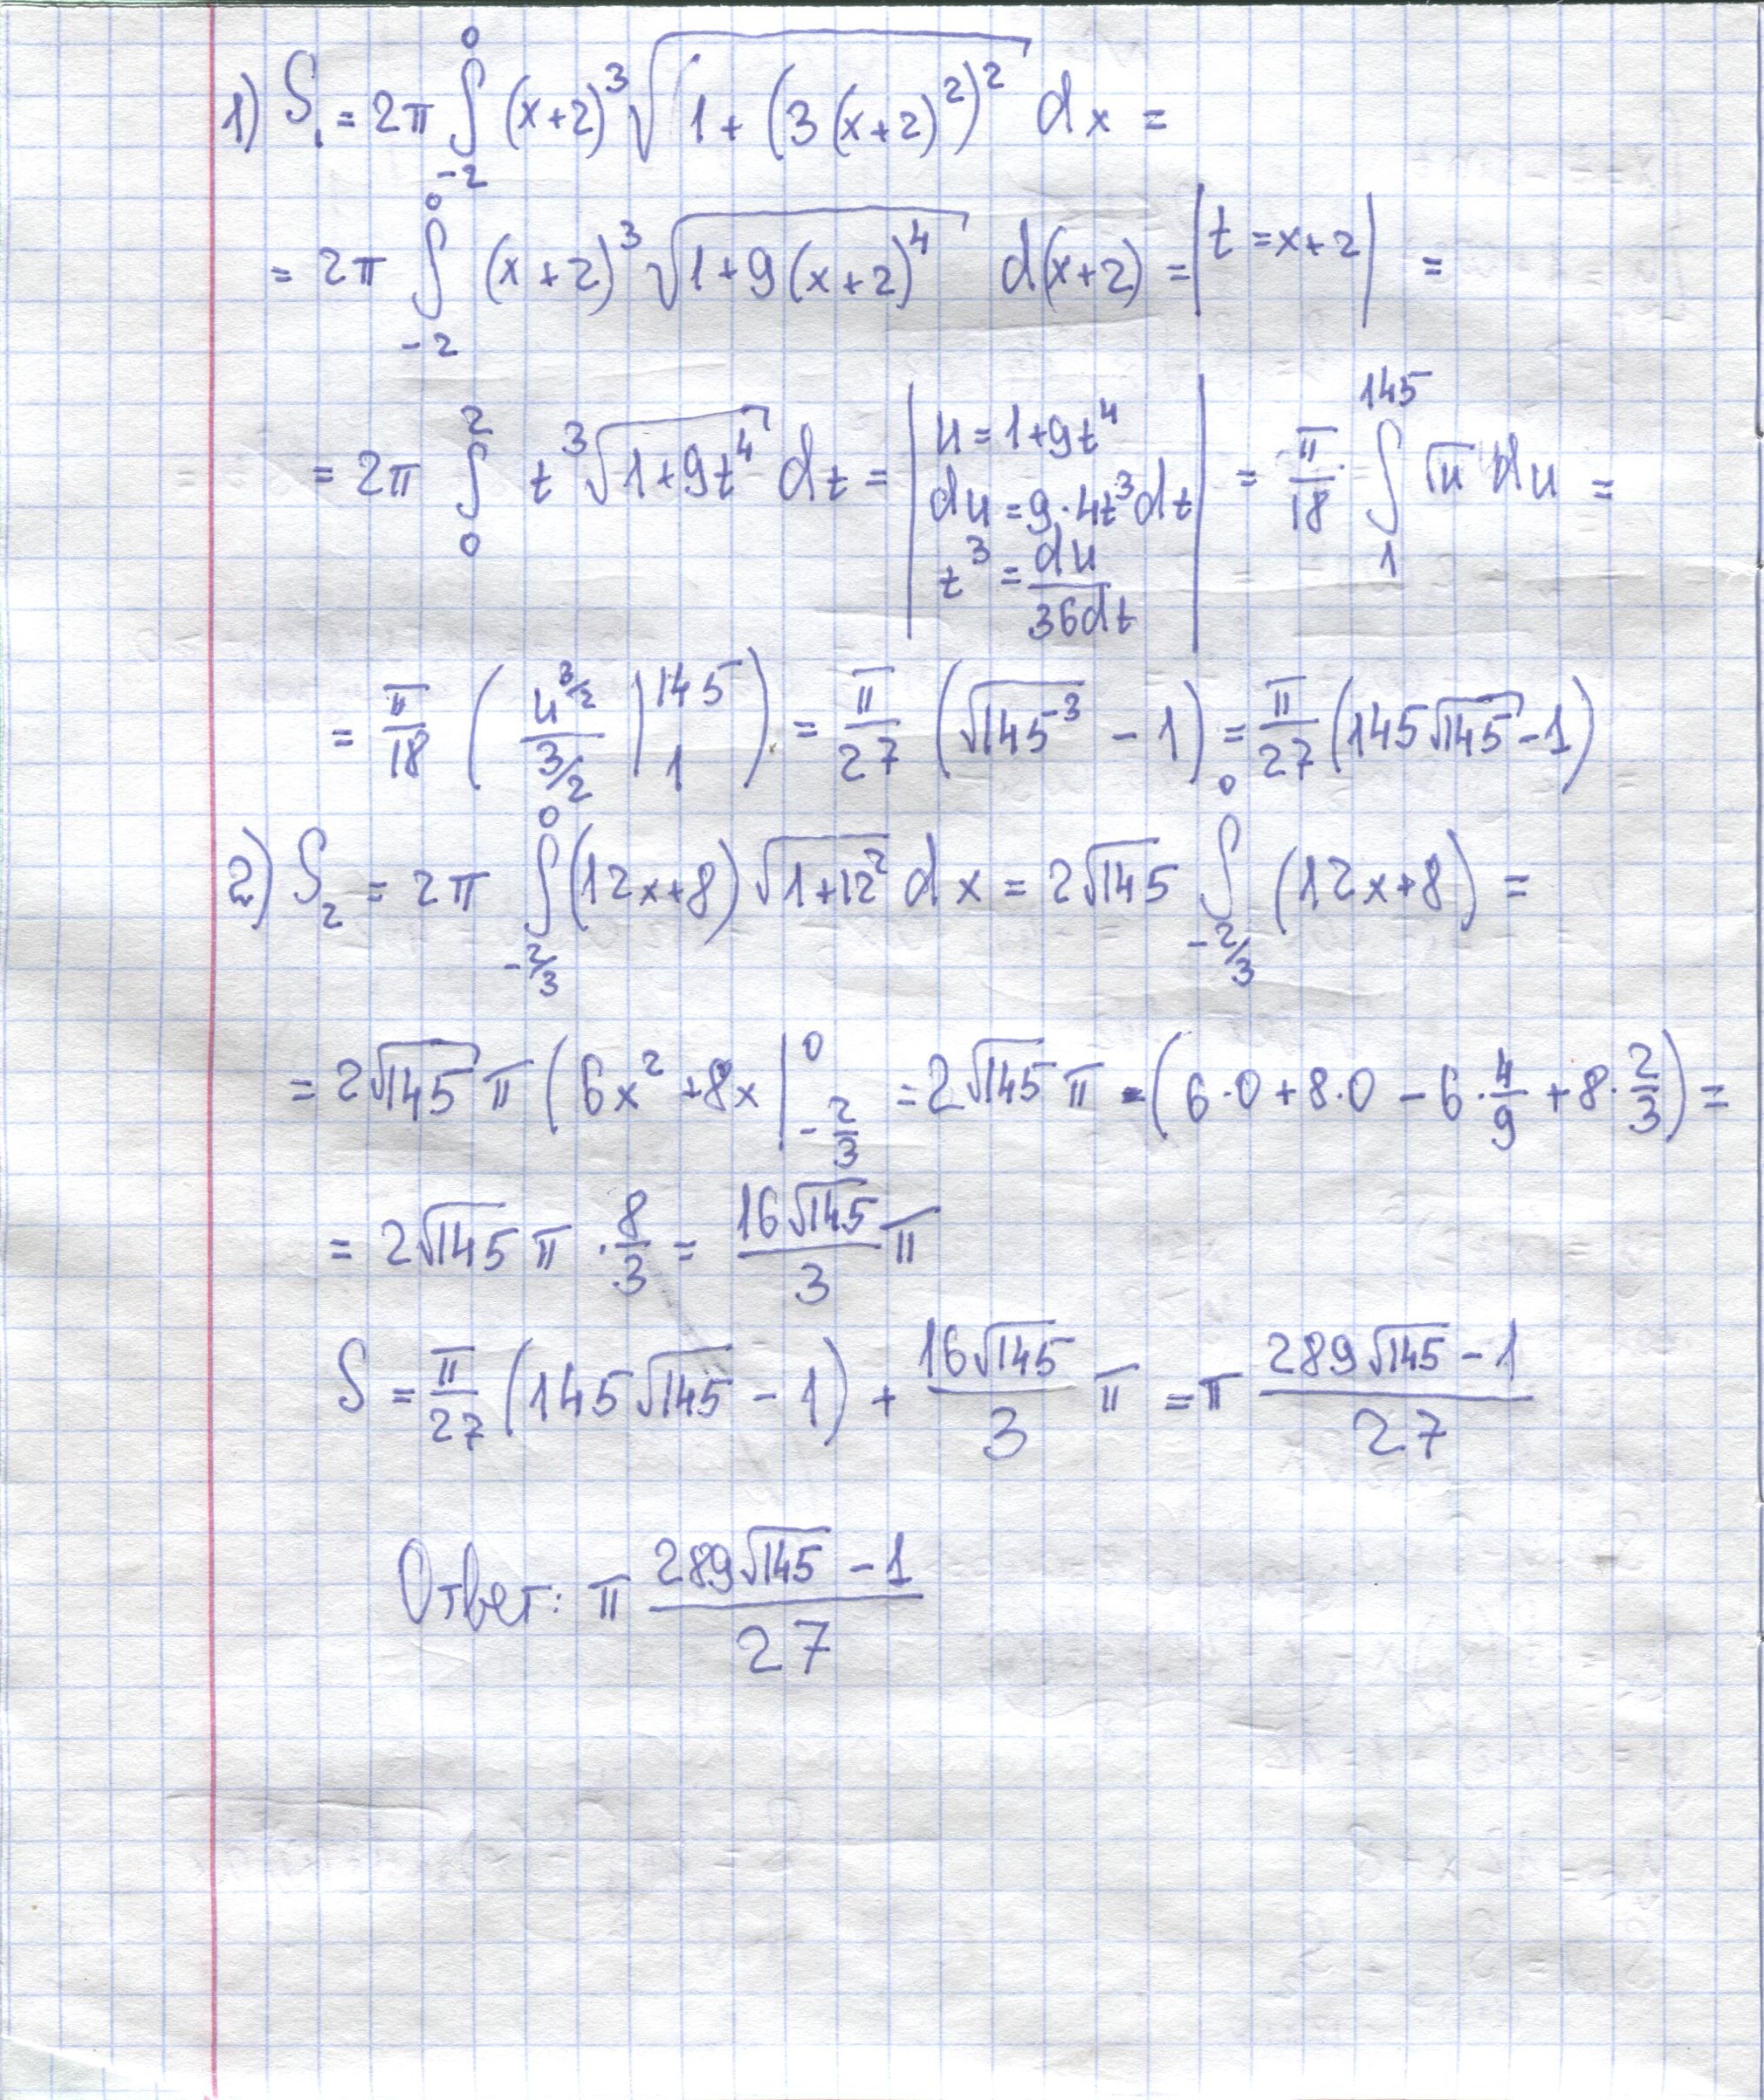 1) S₁ = 2π ∫₋₂⁰ (x+2)³ √(1 + (3(x+2)²)²) dx =
= 2π ∫₋₂⁰ (x+2)³ √(1+9(x+2)⁴) d(x+2) = | t = x+2 | =
= 2π ∫₀² t³ √(1+9t⁴) dt = | u = 1+9t⁴ ; du = 9·4t³dt ; t³ = du/(36dt) | = π/18 · ∫₁¹⁴⁵ √u du =
= π/18 ( u^(3/2)/(3/2) |₁¹⁴⁵ ) = π/27 (√145³ - 1) = π/27 (145√145 - 1)
2) S₂ = 2π ∫_(-2/3)^0 (12x+8) √(1+12²) dx = 2√145 ∫_(-2/3)^0 (12x+8) =
= 2√145 π ( 6x² + 8x |_(-2/3)^0 = 2√145 π · (6·0 + 8·0 - 6·4/9 + 8·2/3) =
= 2√145 π · 8/3 = 16√145/3 π
S = π/27 (145√145 - 1) + 16√145/3 π = π (289√145 - 1)/27
Ответ: π (289√145 - 1)/27